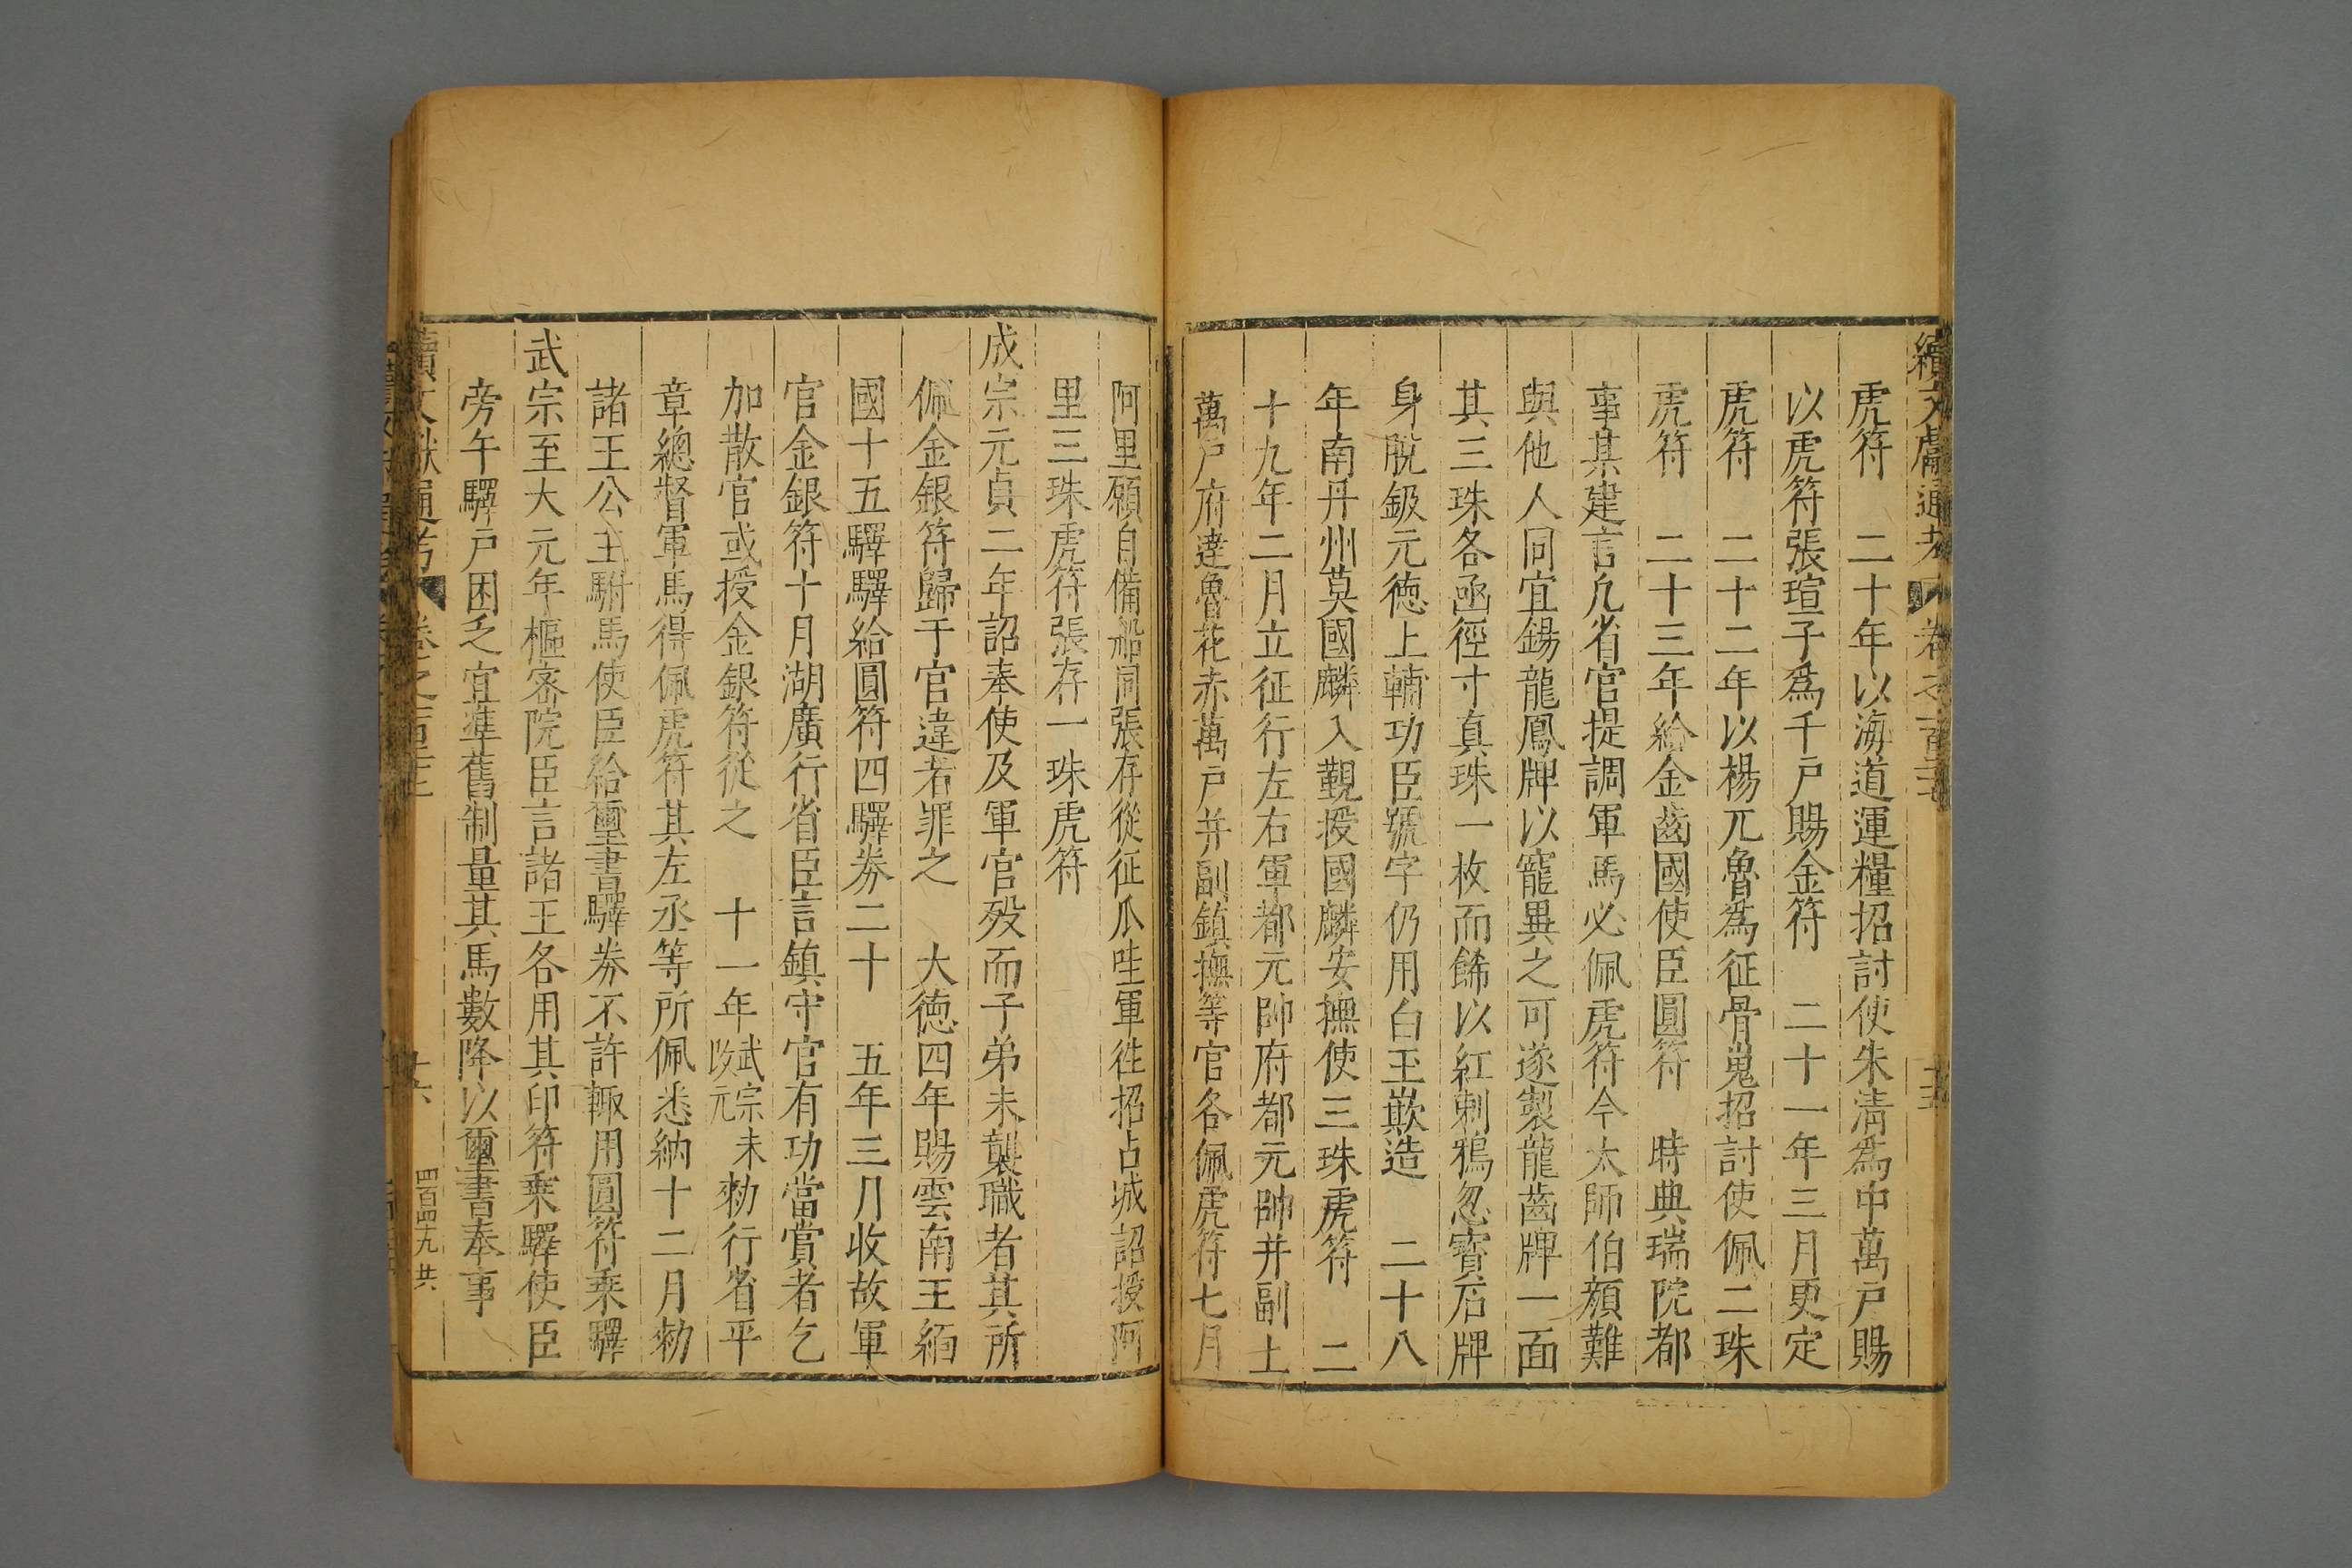 續文獻通考 卷之一百三 十五
虎符　二十年以海道運糧招討使朱清為中萬戶賜
以虎符張瑄子為千戶賜金符　二十一年三月更定
虎符　二十二年以楊兀魯為征骨嵬招討使佩二珠
虎符　二十三年給金齒國使臣圓符　時典瑞院都
事某建言凡省官提調軍馬必佩虎符今太師伯顏難
與他人同宜錫龍鳳牌以寵異之可遂製龍齒牌一面
其三珠各函徑寸真珠一枚而餙以紅剌鴉忽寶石牌
身脫鈒元德上輔功臣號字仍用白玉欺造　二十八
年南丹州莫國麟入覲授國麟安撫使三珠虎符　二
十九年二月立征行左右軍都元帥府都元帥并副上
萬戶府達魯花赤萬戶并副鎮撫等官各佩虎符七月
阿里願自備船同張存從征瓜哇軍徃招占城詔授阿
里三珠虎符張存一珠虎符
成宗元貞二年詔奉使及軍官殁而子弟未襲職者其所
佩金銀符歸于官違者罪之　大德四年賜雲南王緬
國十五驛驛給圓符四驛券二十　五年三月收故軍
官金銀符十月湖廣行省臣言鎮守官有功當賞者乞
加散官或授金銀符從之　十一年武宗未改元勑行省平
章總督軍馬得佩虎符其左丞等所佩悉納十二月勑
諸王公主駙馬使臣給璽書驛券不許輙用圓符乘驛
武宗至大元年樞密院臣言諸王各用其印符乘驛使臣
旁午驛戶困乏宜準舊制量其馬數降以璽書奉事
續文獻通考 卷之一百三 十六 四百四十九 共